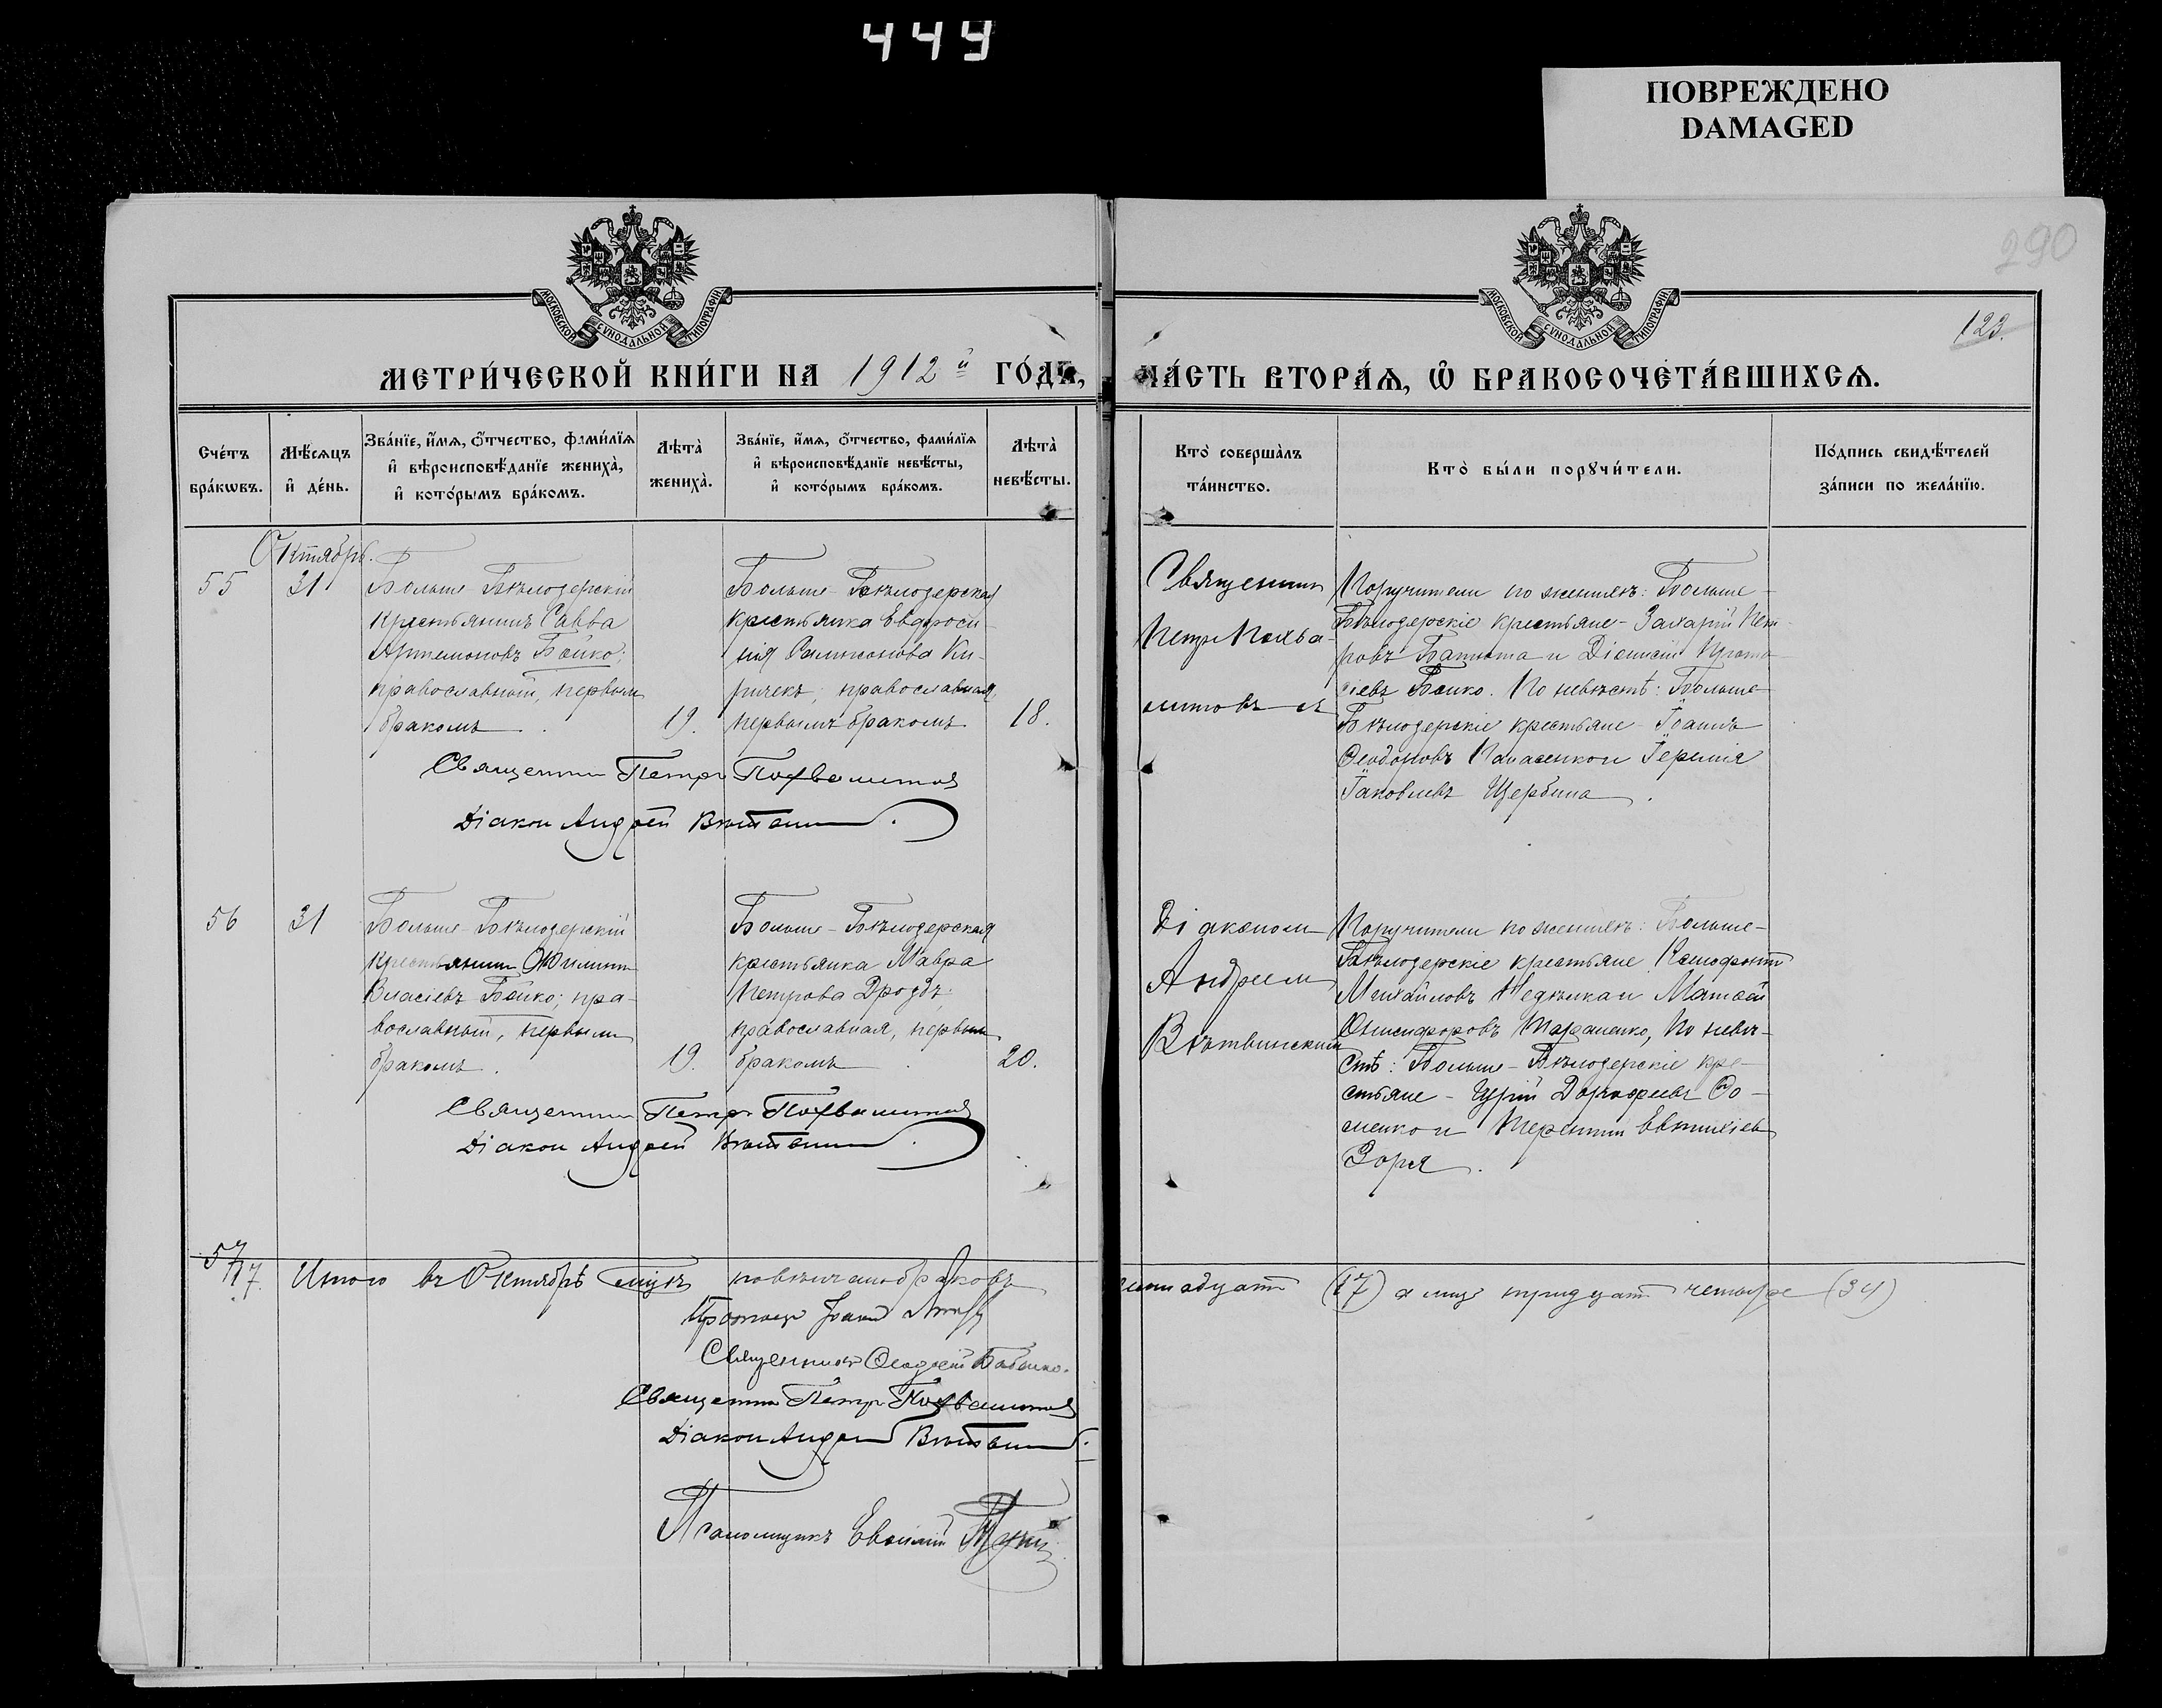 449
ПОВРЕЖДЕНО
DAMAGED
290
123.
МОСКОВСКОЙ СѴНОДАЛЬНОЙ ТИПОГРАФІИ.
МОСКОВСКОЙ СѴНОДАЛЬНОЙ ТИПОГРАФІИ.
МЕТРИ́ЧЕСКОЙ КНИ́ГИ НА 1912й ГО́ДЪ,
ЧА́СТЬ ВТОРА́Ѧ, Ѽ БРАКОСОЧЕТА́ВШИХСѦ.
Сче́тъ
бра́кѡвъ.
Мѣ́сѧцъ
и҆ де́нь.
Зва́нїе, и҆́мѧ, ѻ҆́тчество, фами́лїѧ
и҆ вѣроисповѣ́данїе жениха̀,
и҆ кото́рымъ бра́комъ.
Лѣта̀
жениха̀.
Зва́нїе, и҆́мѧ, ѻ҆́тчество, фами́лїѧ
и҆ вѣроисповѣ́данїе невѣ́сты,
и҆ кото́рымъ бра́комъ.
Лѣта̀
невѣ́сты.
Кто̀ соверша̀лъ
та́инство.
Кто̀ бы́ли порꙋчи́тели.
По́дпись свидѣ́телей
за́писи по жела́нїю.
Октябрь.
55
31
Больше-Бѣлозерскій
крестьянинъ Савва
Артемоновъ Бойко;
православный, первымъ
бракомъ.
19.
Больше-Бѣлозерская
крестьянка Евфроси-
нія Сампсонова Ки-
ричекъ; православная,
первымъ бракомъ
18.
Священникъ
Петръ Похва-
литовъ съ
Поручители по женихѣ: Больше-
Бѣлозерскіе крестьяне-Захарій Пет-
ровъ и Діонисій
Бойко. По невѣстѣ: Больше-
Бѣлозерскіе крестьяне-Іоаннъ
Ѳеодоровъ Панасенко и Іеремія
Іаковлевъ Щербина.
Священникъ Петръ Похвалитовъ
Діаконъ Андрей
56
31
Больше-Бѣлозерскій
крестьянинъ Филиппъ
Власіевъ Бойко; пра-
вославный, первымъ
бракомъ.
19.
Больше-Бѣлозерская
крестьянка Мавра
Петрова Дроздъ;
православная, первымъ
бракомъ.
20.
Діакономъ
Андреемъ
Поручители по женихѣ: Больше-
Бѣлозерскіе крестьяне Ксенофонтъ
Михайловъ и Матѳей
Онисифоровъ По невѣ-
стѣ: Больше-Бѣлозерскіе кре-
стьяне-Гурій Дороѳеевъ Ѳо-
менко и Терентій Евтихіевъ
Зоря.
Священникъ Петръ Похвалитовъ
Діаконъ Андрей
57/17.
Итого въ Октябрѣ мѣсяцѣ повѣнчано браковъ
семнадцать (17) а лицъ тридцать четыре (34)
Іоаннъ
Священникъ Бабенко.
Священникъ Петръ Похвалитовъ
Діаконъ Андрей
Псаломщикъ Евѳимій